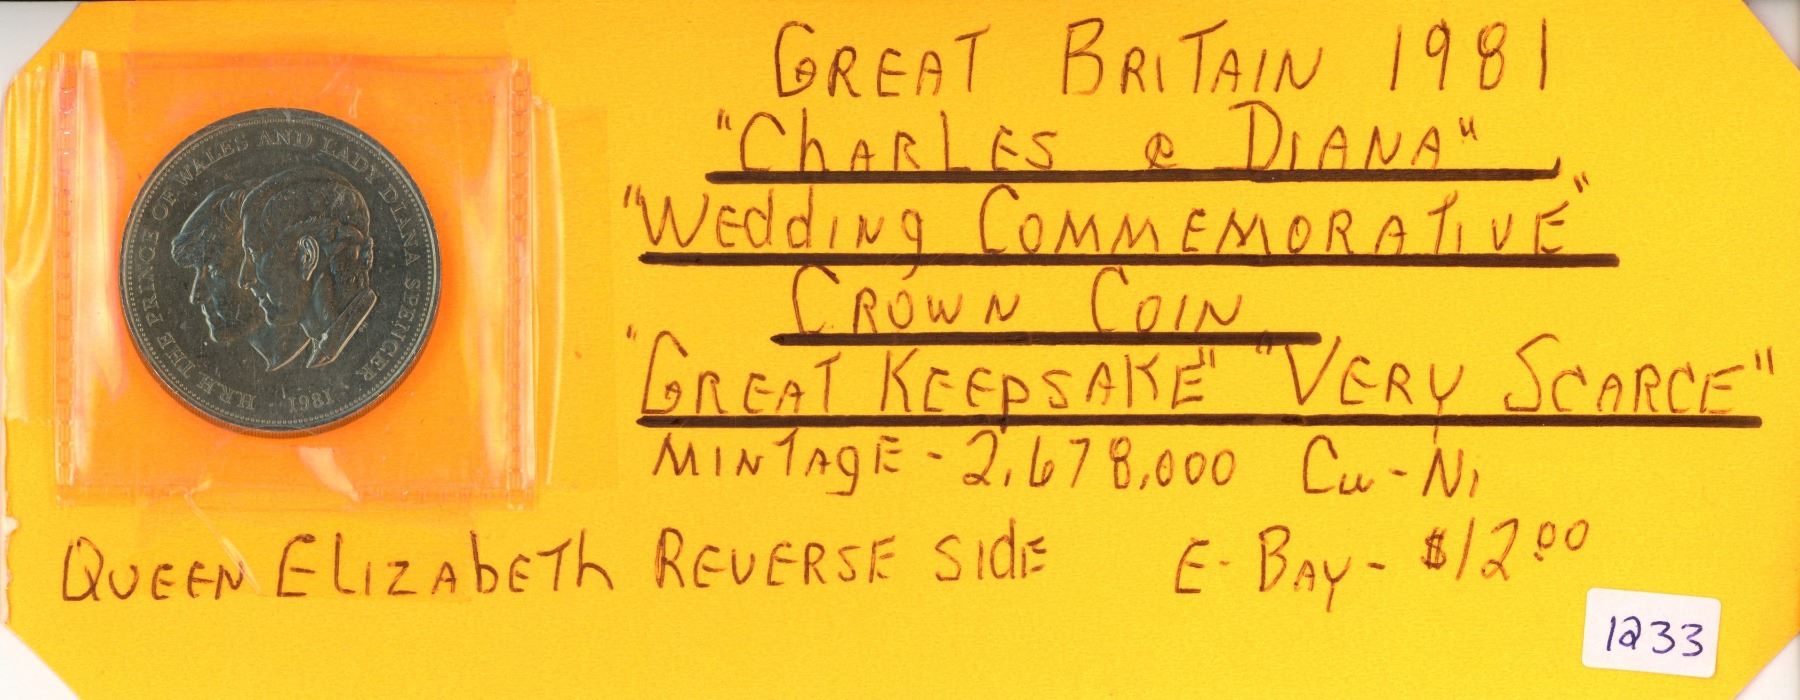 HRH THE PRINCE OF WALES AND LADY DIANA SPENCER
· 1981 ·
GREAT BRITAIN 1981
"CHARLES & DIANA"
"WEDDING COMMEMORATIVE"
CROWN COIN
"GREAT KEEPSAKE" "VERY SCARCE"
MINTAGE - 2,678,000 Cu-Ni
QUEEN ELIZABETH REVERSE SIDE E-BAY- $12.00
1233